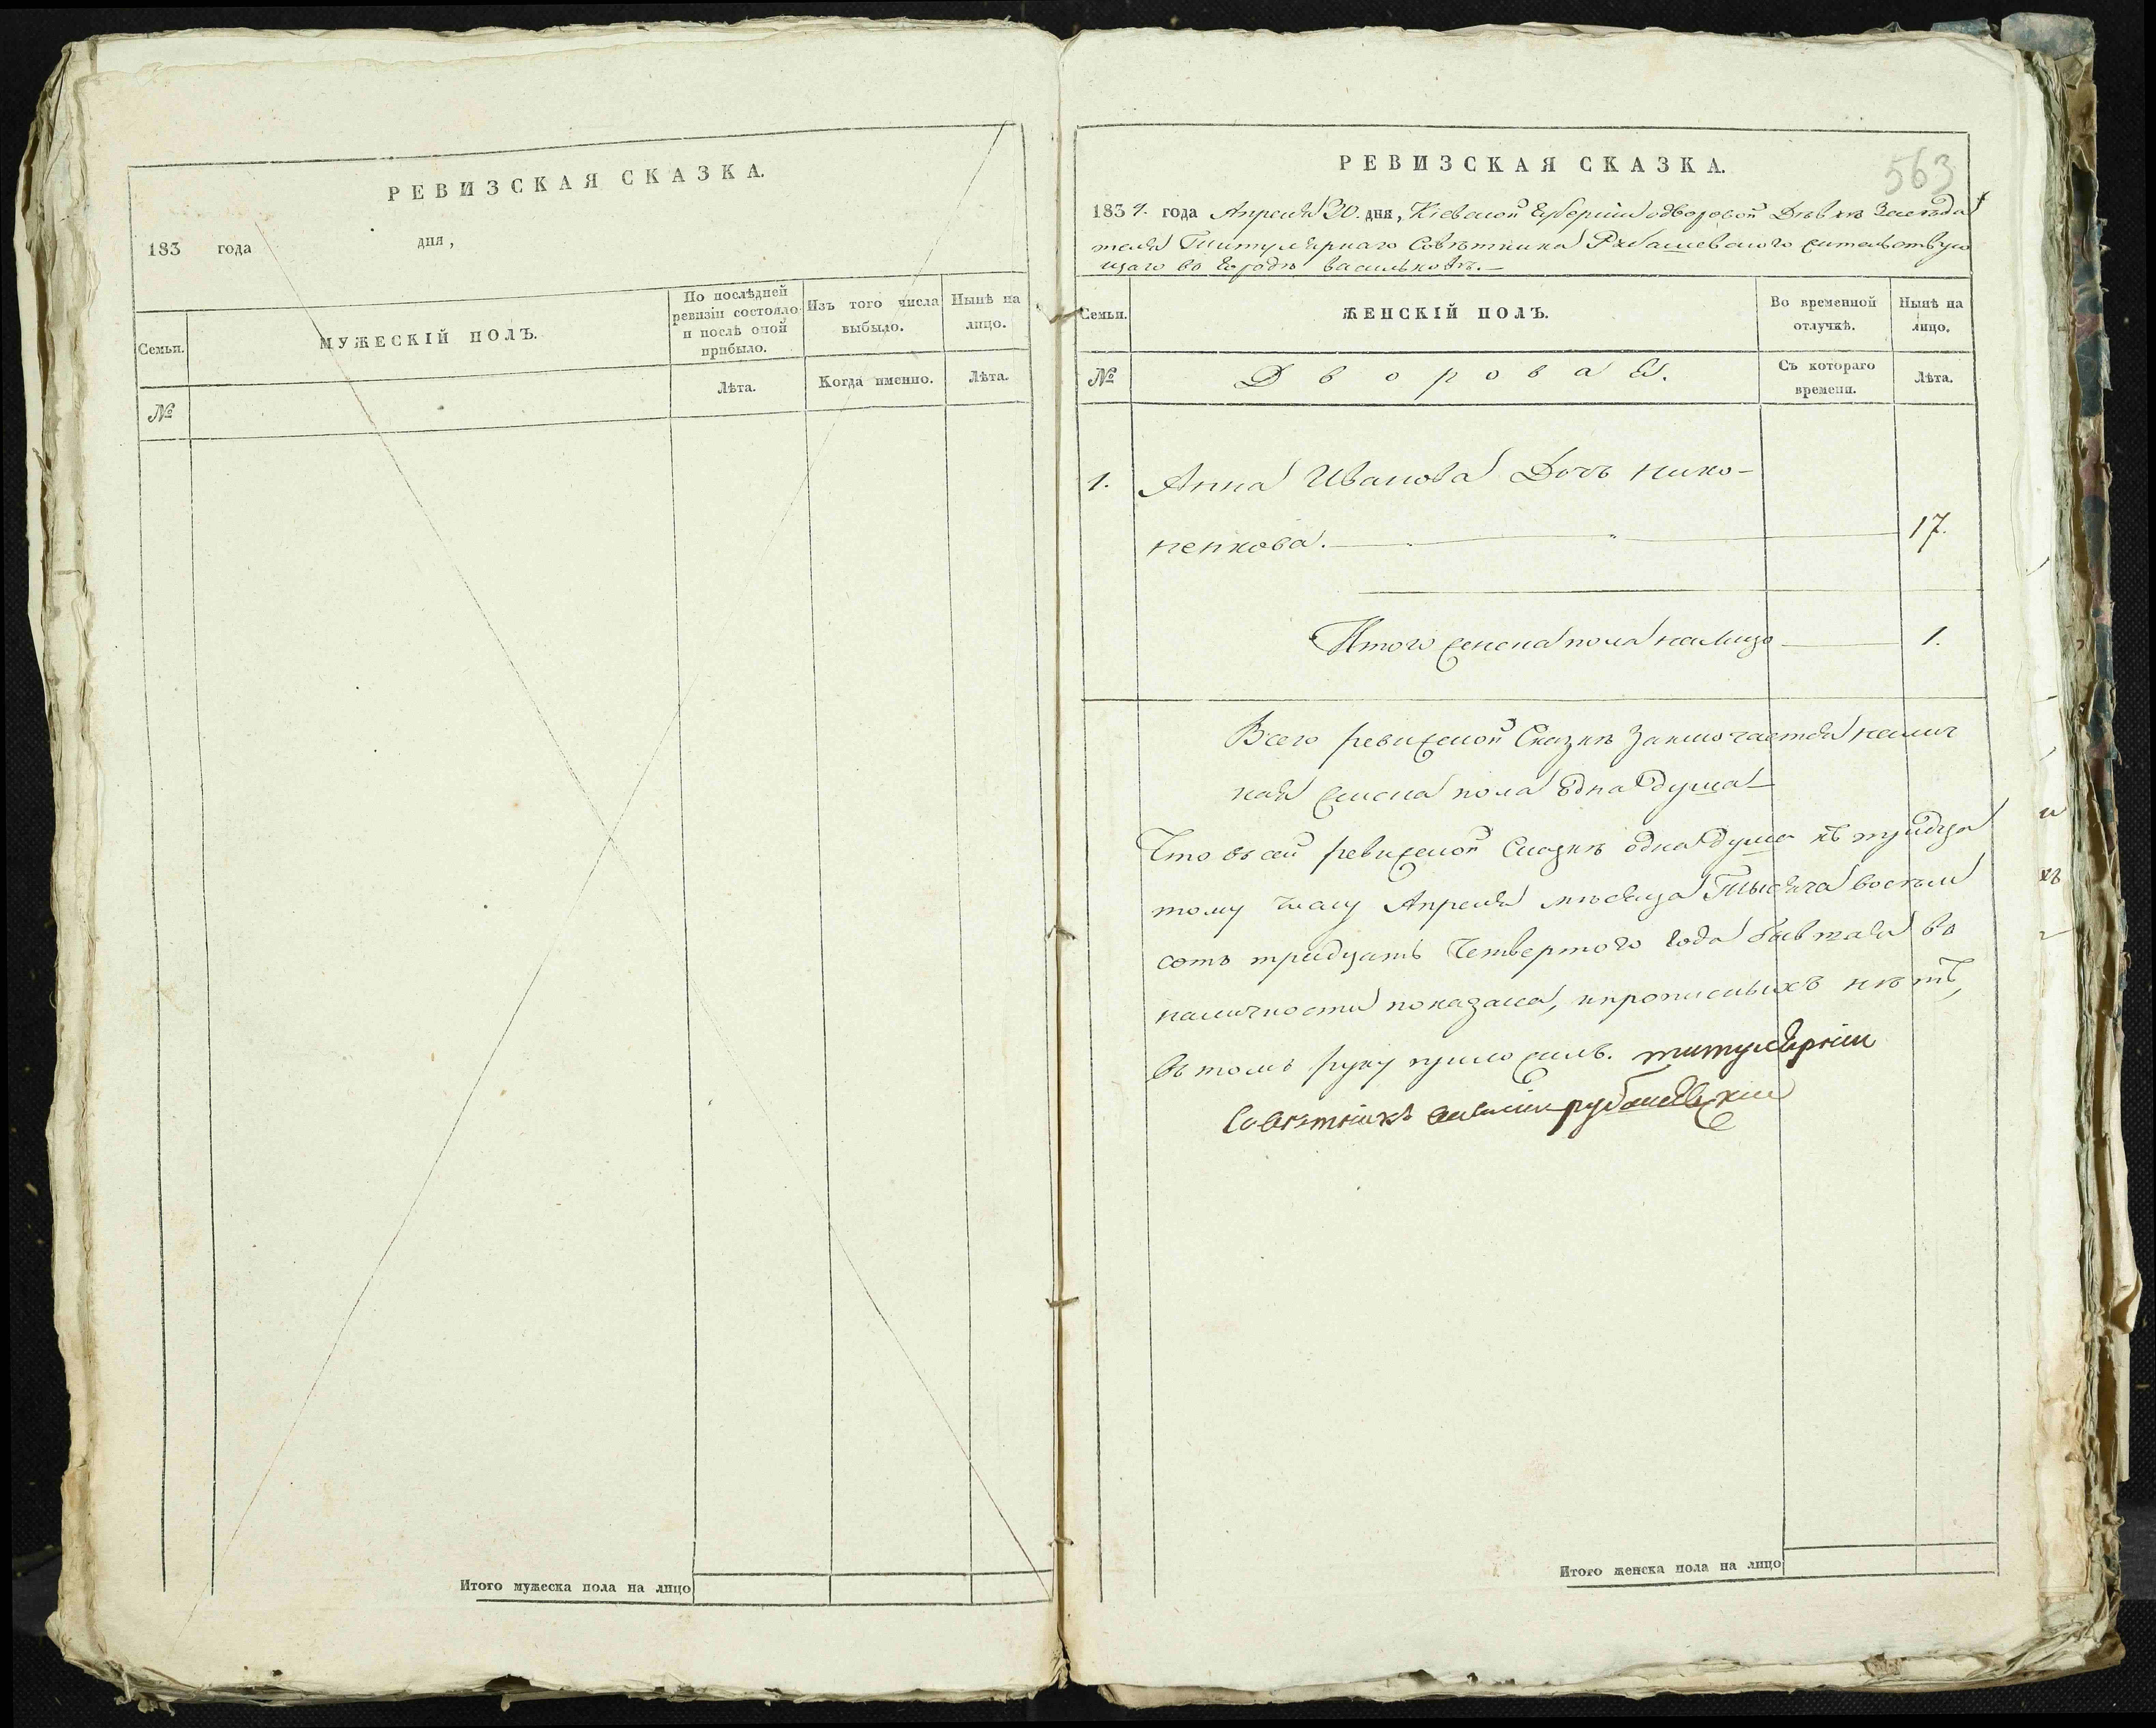 РЕВИЗСКАЯ СКАЗКА.
183 года дня,
Семьи.
МУЖЕСКІЙ ПОЛЪ.
По послѣдней
ревизіи состояло
и послѣ оной
прибыло.
Изъ того числа
выбыло.
Нынѣ на
лицо.
№
Лѣта.
Когда именно.
Лѣта.
Итого мужеска пола на лицо
563
РЕВИЗСКАЯ СКАЗКА.
1834. года Апреля 20. дня, Кіевской Губерніи о дворовой Дѣвкѣ Заседа
теля Титулярнаго Совѣтника жительствую
щаго во Городѣ Василькобѣ.—
Семьи.
ЖЕНСКІЙ ПОЛЪ.
Во временной
отлучкѣ.
Нынѣ на
лицо.
№
Дворовая.
Съ котораго
времени.
Лѣта.
1. Анна Иванова Дочь Нико-
ненкова. 17.
Итого женска пола налицо 1.
Всего ревижской Сказкѣ Заключается налич
ная женска пола одна душа
Что въ сей ревижской Сказкѣ одна душа къ тридца
тому числу Апреля мѣсяца Тысяча восемь
сотъ тридцать Четвертого Года бывшая во
наличности показана, и прописныхъ нѣтъ,
въ томъ руку приложилъ. титулярній
Совѣтникъ
Итого женска пола на лицо